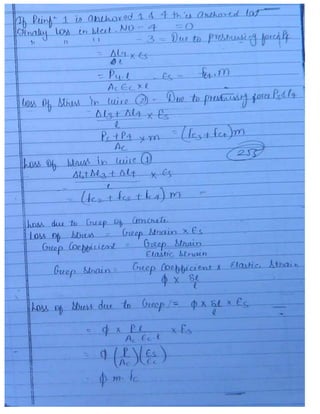 If Reinf" 1 is anchored 1 & 4 this anchored last
loss in steel NO - 4 = 0
" " " - 3 = Due to prestressing force P4
= ΔL4/l × Es
= P4 l / Ac Ec × l · Es = fc4 . m
loss of stress in wire ② - Due to prestressing force P3 & P4
ΔL3 + ΔL4 / l × Es
P3 + P4 / Ac × m = (fc3 + fc4) m
255
Loss of stress in wire ①
ΔL2 + ΔL3 + ΔL4 / l × Es
= (fc2 + fc3 + fc4) m
Loss due to Creep of Concrete
Loss of stress = Creep strain × Es
Creep Coefficient = Creep Strain / Elastic Strain
Creep Strain = Creep Coefficient × Elastic Strain
φ × δl / l
Loss of stress due to Creep = φ × δl / l × Es
= φ × Pl / Ac Ec l × Es
= φ (P/Ac) (Es/Ec)
= φ m fc